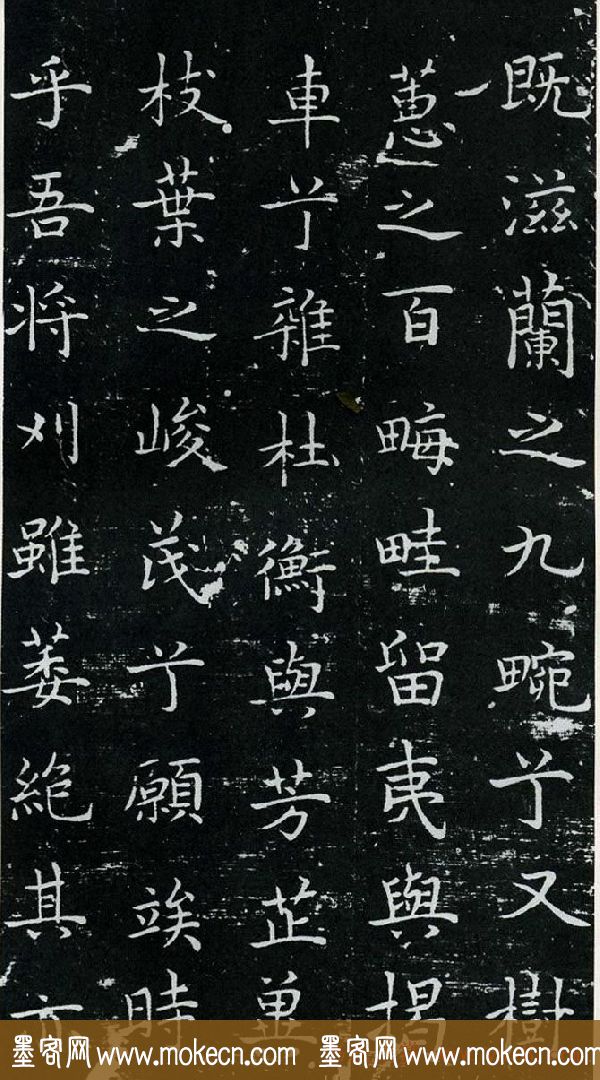 既滋蘭之九畹兮又樹
蕙之百畮畦留夷與揭
車兮雜杜衡與芳芷冀
枝葉之峻茂兮願竢時
乎吾将刈雖萎絶其亦
墨客网 www.mokecn.com 墨客网 www.mokecn.com